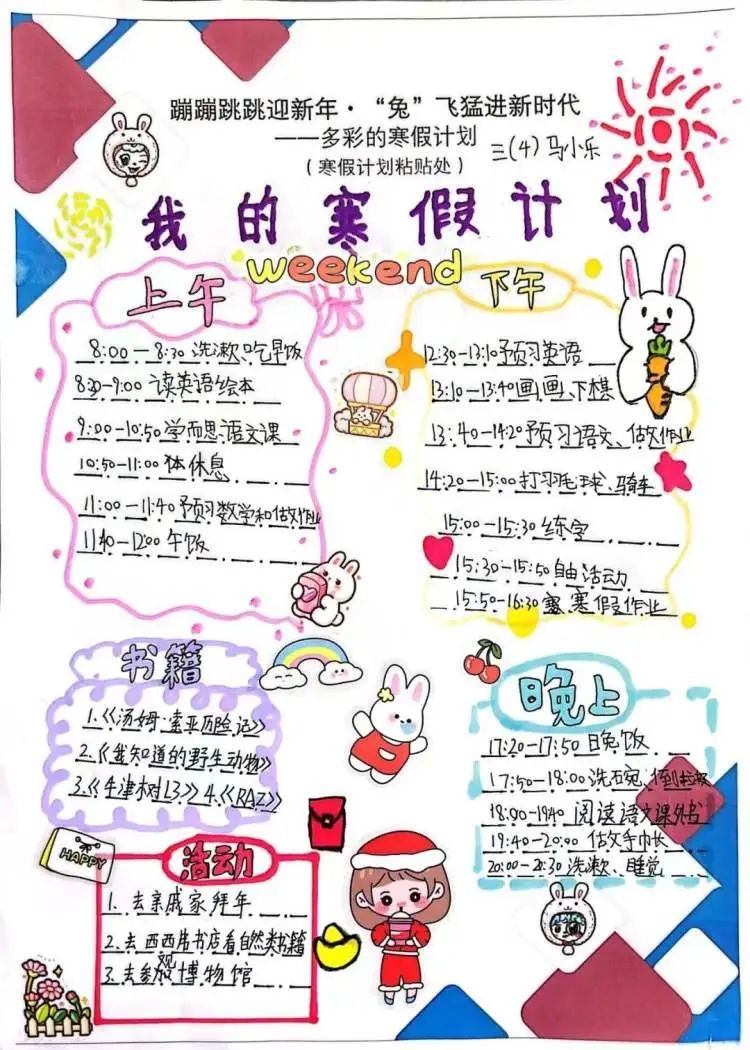 蹦蹦跳跳迎新年·“兔”飞猛进新时代
——多彩的寒假计划
（寒假计划粘贴处）
三(4) 马小乐
我的寒假计划
weekend
上午
8:00—8:30 洗漱、吃早饭
8:30-9:00 读英语绘本
9:00-10:50 学而思语文课
10:50-11:00 休息
11:00-11:40 预习数学和做作业
11:40-12:00 午饭
下午
12:30-13:10 预习英语
13:10-13:40 画画、下棋
13:40-14:20 预习语文、做作业
14:20-15:00 打羽毛球、骑车
15:00-15:30 练字
15:30-15:50 自由活动
15:50-16:30 寒假作业
书籍
1.《汤姆·索亚历险记》
2.《我知道的野生动物》
3.《牛津树L3》4.《RAZ》
晚上
17:20-17:50 晚饭
17:50-18:00 洗碗、倒垃圾
18:00-19:40 阅读语文课外书
19:40-20:00 做手巾长
20:00-20:30 洗漱、睡觉
HAPPY
活动
1. 去亲戚家拜年
2. 去西西弗书店看自然类书籍
3. 去参观博物馆